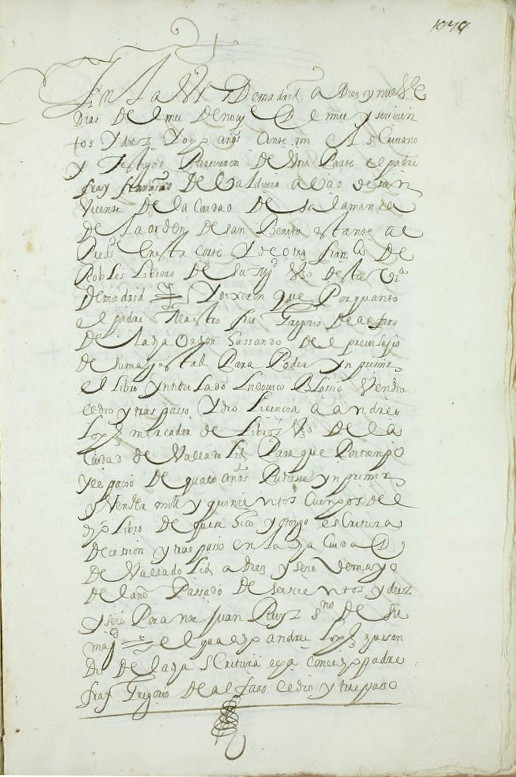 1079
En la Villa De madrid a diez y nueve
Dias Del mes De nobie De mill y seiscien
tos y diez y ocho años ante mi el scrivano
y testigos Parecieron De Una Parte el padre
fray De la
Vicente De la ciudad De Salamanca
De la orden De san Benito estante al
Press en esta corte y De otra fran co De
Robles librero De su mg Vo De sta Va
De madrid = y Dixeron que Por quanto
el padre Maestro fray Gregorio De alfaro
De la dha orden Ussando Del previlejio
De su magestad Para Poder ynprimir
el libro yntitulado Ludovico Blossio Vendio
cedio y traspaso y dio licencia a andres
lopz mercader de libros Vo De la
ciudad de Valladolid Para que Por tienpo
y espacio De quatro años Pudiese ynprimir
y Vender mill y quinientos Cuerpos del
dho libro De que hico y otorgo escritura
De cesion y traspaso en la dha ciudad
De Valladolid a diez y seis De mayo
De laño Passado De seiscientos y diez
y seis Por ante Juan Ruyz s no De su
magd = el qual dho andres lopz ussan
Do De la dha scritura que el dho padre
fray Gregorio De alfaro cedio y traspaso